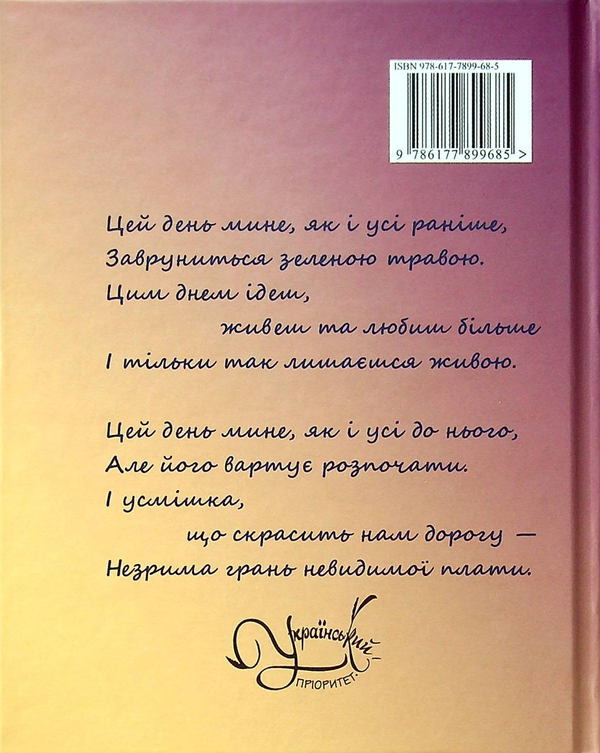 ISBN 978-617-7899-68-5
9 786177 899685 >
Цей день мине, як і усі раніше,
Завруниться зеленою травою.
Цим днем ідеш,
живеш та любиш більше
І тільки так лишаєшся живою.
Цей день мине, як і усі до нього,
Але його вартує розпочати.
І усмішка,
що скрасить нам дорогу —
Незрима грань невидимої плати.
Український
ПРІОРИТЕТ